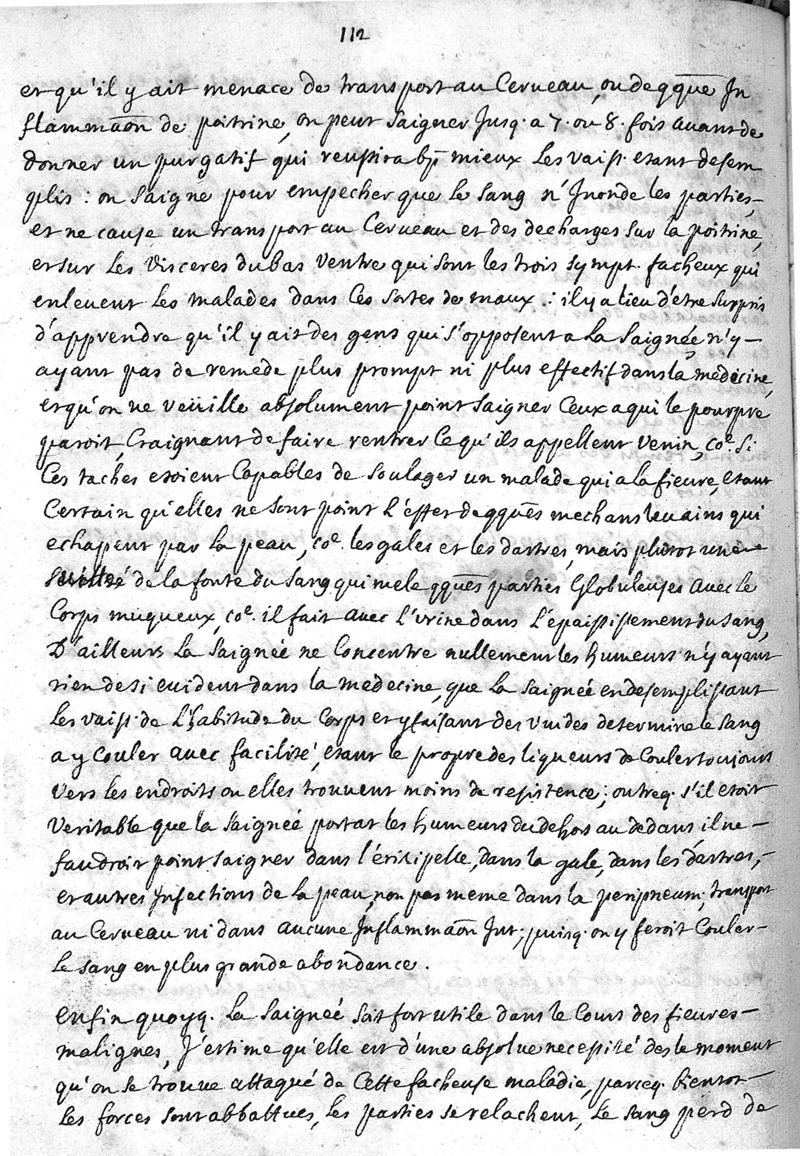 112
et qu'il y ait menace de transport au Cerveau, ou de qque In
flammaōn de poitrine, on peut saigner Jusq. a 7. ou 8. fois avant de
donner un purgatif qui reussira bn mieux Les vaiss. etant desem
plis : on saigne pour empecher que Le sang n'Inonde les parties,
et ne cause un transport au Cerveau et des decharges sur la poitrine,
et sur Les visceres du bas ventre qui sont les trois sympt. facheux qui
enlevent Les malades dans Ces sortes de maux : il y a lieu d'etre surpris
d'apprendre qu'il y ait des gens qui s'opposent a La saignée n'y
ayant pas de remede plus prompt ni plus effectif dans la medecine,
et qu'on ne veüille absolument point saigner Ceux a qui le pourpre
paroit, Craignant de faire rentrer Ce qu'ils appellent venin, coe. si
Ces taches etoient Capables de soulager un malade qui a la fievre, etant
Certain qu'elles ne sont point L'effet de qques mechans levains qui
echapent par la peau, coe. les gales et les dartres, mais plutot une
de la fonte du sang qui mele qques parties Globuleuses avec le
Corps muqueux, coe. il fait avec L'urine dans L'epaississement du sang,
D'ailleurs La saignée ne Concentre nullement les humeurs n'y ayant
rien de si evident dans la medecine, que La saignée en desemplissant
Les vaiss. de L'habitude du Corps et y faisant des vuides determine le sang
a y Couler avec facilité, etant le propre des liqueurs de Couler toujours
vers les endroits ou elles trouvent moins de resistence ; outreq. s'il etoit
veritable que la saignée portat les humeurs du dehors au dedans, il ne
faudroit point saigner dans l'érisipelle, dans la gale, dans les dartres,
et autres Infections de la peau, non pas meme dans la peripneum, transport
au Cerveau ni dans aucune Inflammaōn Int ; puisq. on y feroit Couler
Le sang en plus grande abondance.
Enfin quoyq. La saignée soit fort utile dans le Cours des fievres
malignes, J'estime qu'elle est d'une absolue necessité des le moment
qu'on se trouve attaqué de Cette facheuse maladie, parceq. bientot
Les forces sont abbattues, Les parties se relachent, Le sang perd de